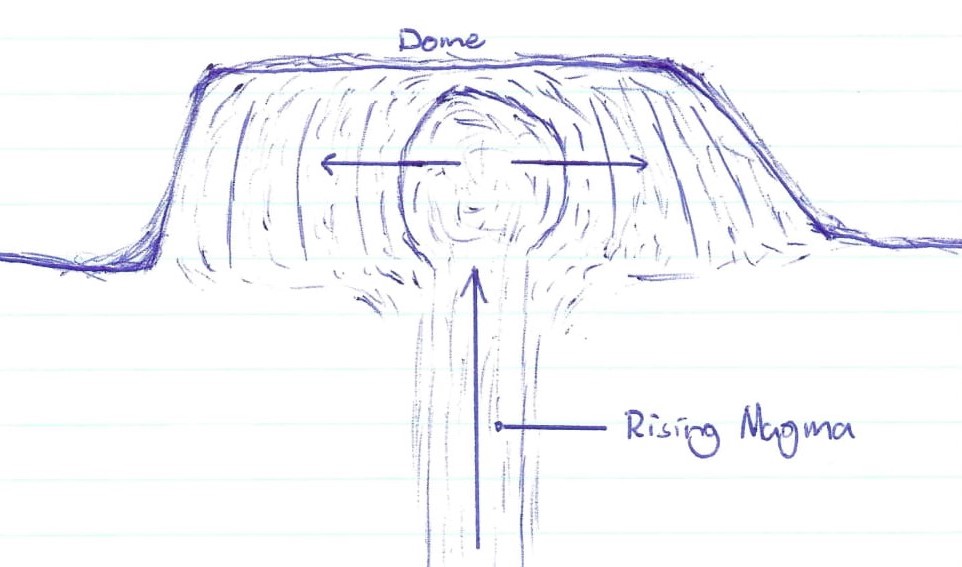 Dome
Rising Magma